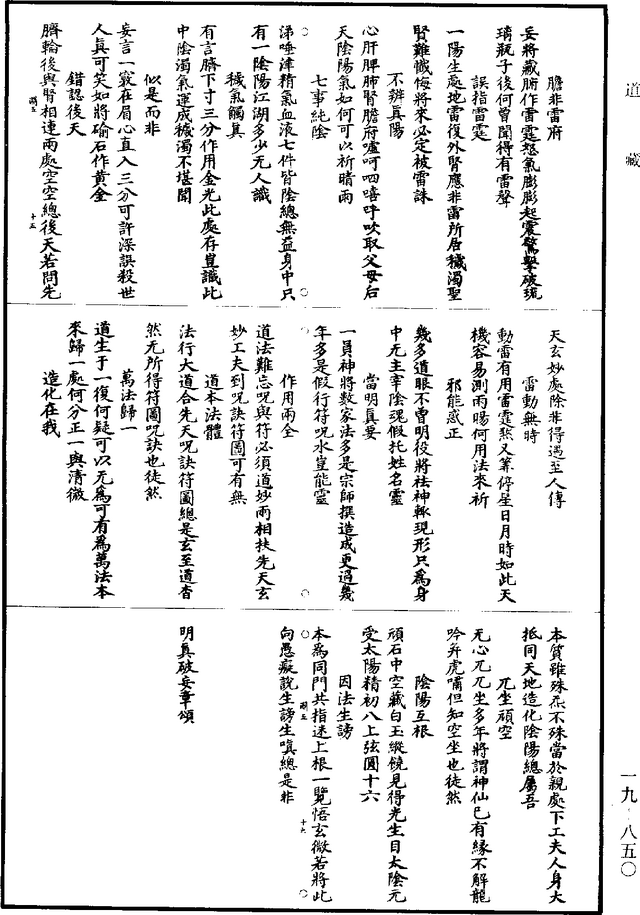 道藏
膽非雷府
妄將藏腑作雷霆怒氣膨膨起震驚擊破琉
璃瓶子後何曾聞得有雷聲
誤指雷霆
一陽生處地雷復外腎應非雷所居穢濁聖
賢難懺悔將來必定被雷誅
不辨真陽
心肝脾肺腎膽府噓呵呬嘻呼吹取父母后
天陰陽氣如何可以祈晴雨
七事純陰
涕唾津精氣血液七件皆陰總無益身中只
有一陰陽江湖多少无人識
穢氣觸真
有言臍下寸三分作用金光此處存豈識此
中陰濁氣運成穢濁不堪聞
似是而非
妄言一竅在眉心直入三分可許深誤殺世
人真可笑如將碖石作黃金
錯認後天
臍輪後與腎相連兩處空空總後天若問先
十五
天玄妙處除非得遇至人傳
雷動無時
動雷有用雷霆煞又筭停星日月時如此天
機容易測雨暘何用法來祈
邪能惑正
幾多道眼不曾明役將祛神輒現形只為身
中无主宰陰瑰假托姓名靈
當明真妄
一員神將數家法多是宗師撰造成更過幾
年多是假行符呪水豈能靈
作用兩全
道法難忘呪與符必須道妙兩相扶先天玄
妙工夫到呪訣符圖可有無
道本法體
法行大道合先天呪訣符圖總是玄至道杳
然无所得符圖呪訣也徒然
萬法歸一
道生于一復何疑可以无為可有為萬法本
來歸一處何分正一與清微
造化在我
本質雖殊炁不殊當於親處下工夫人身大
抵同天地造化陰陽總屬吾
兀坐頑空
无心兀兀坐多年將謂神仙已有緣不解龍
吟并虎嘯但知空坐也徒然
陰陽互根
頑石中空藏白玉縱饒見得光生目太陰元
受太陽精初八上弦圓十六
因法生謗
本為同門共指迷上根一覽悟玄微若將此
十六
向愚癡說生謗生嗔總是非
明真破妄章頌
一九·八五〇